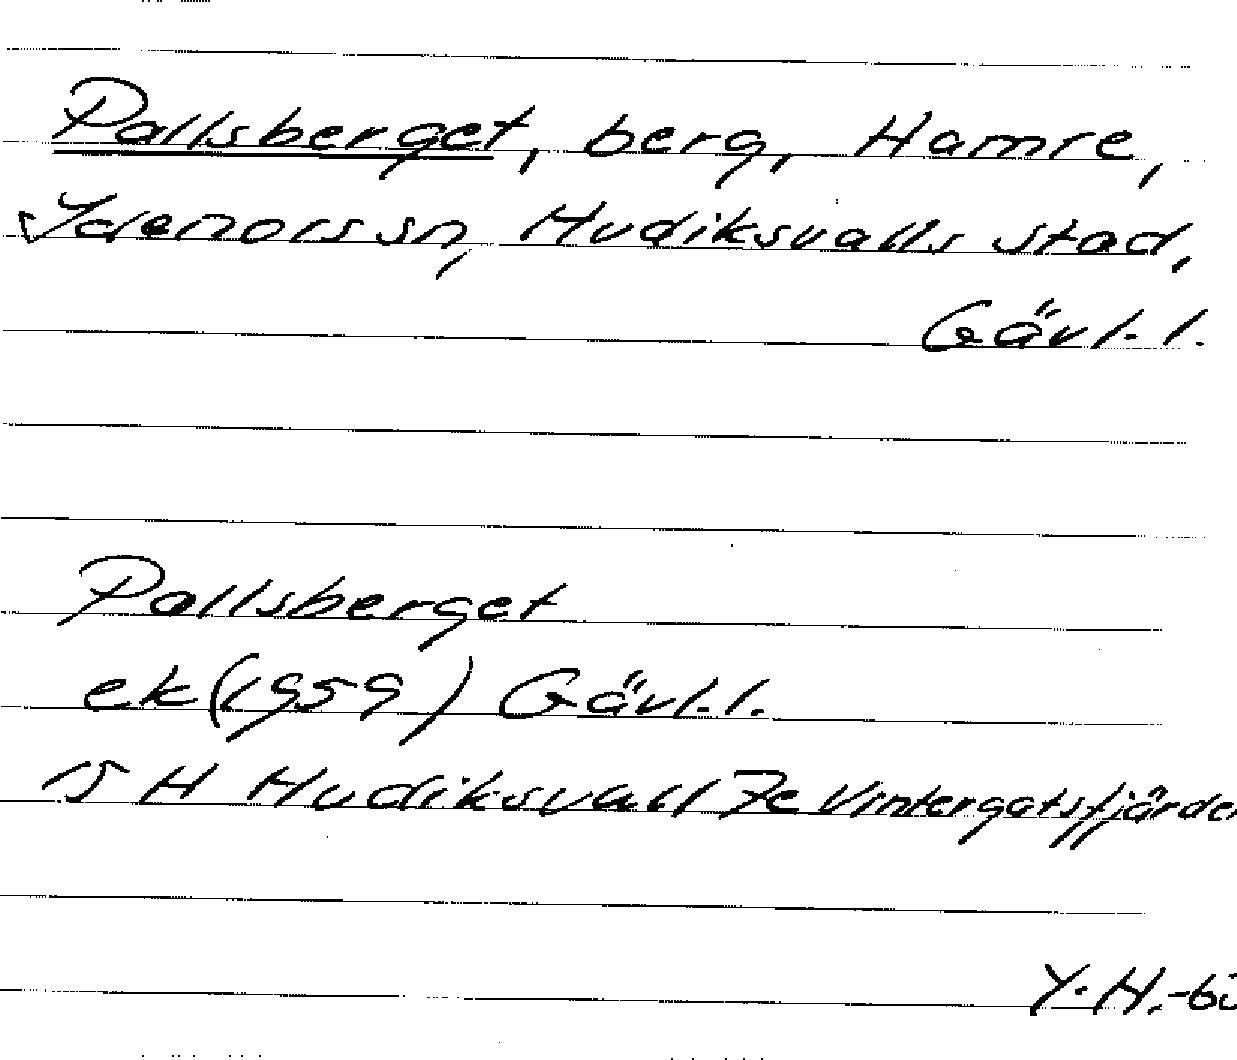 Pallsberget, berg, Hamre,
Idenors sn, Hudiksvalls stad,
Gävl.l.
Pallsberget
ek (1959) Gävl.l.
15 H Hudiksvall 7e Vintergatsfjärde
Y.H.-